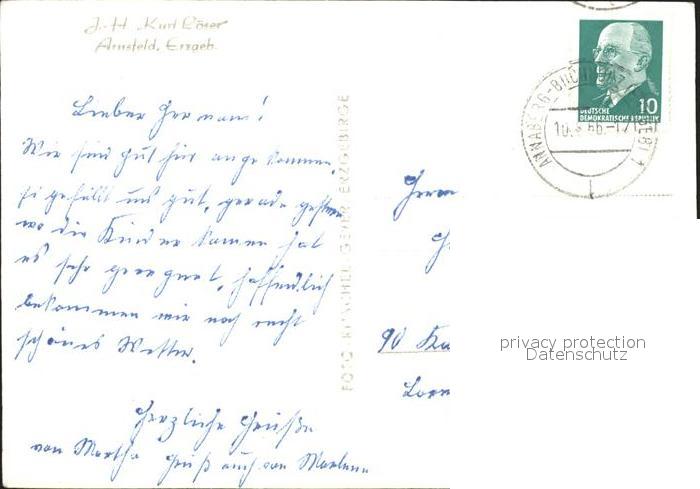 J.-H. „Kurt Löser"
Arnsfeld, Erzgeb.
Lieber Hermann!
Wir sind gut hier angekommen,
gefällt uns gut, gerade gestern
wo die Kinder kamen hat
es sehr geregnet, hoffendlich
bekommen wir noch recht
schönes Wetter.
Herzliche Grüße
von Martha Gruß auch von Marlene
FOTO GEYER ERZGEBIRGE
DEUTSCHE
DEMOKRATISCHE REPUBLIK
10
ANNABERG-BUCHHOLZ
1
Herrn
90
privacy protection
Datenschutz